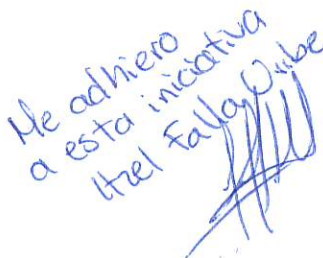 Me adhiero
a esta iniciativa
Itzel Falla Uribe